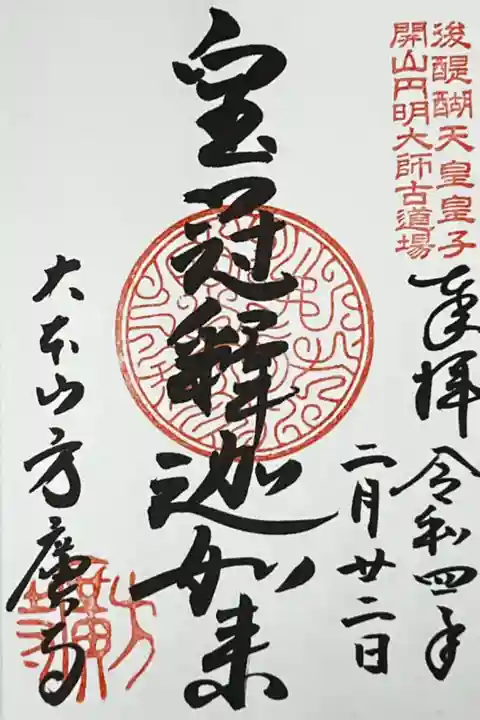 後醍醐天皇皇子
開山円明大師古道場
奉拝 令和四年
二月廿二日
皇冠釋迦如来
大本山方廣寺